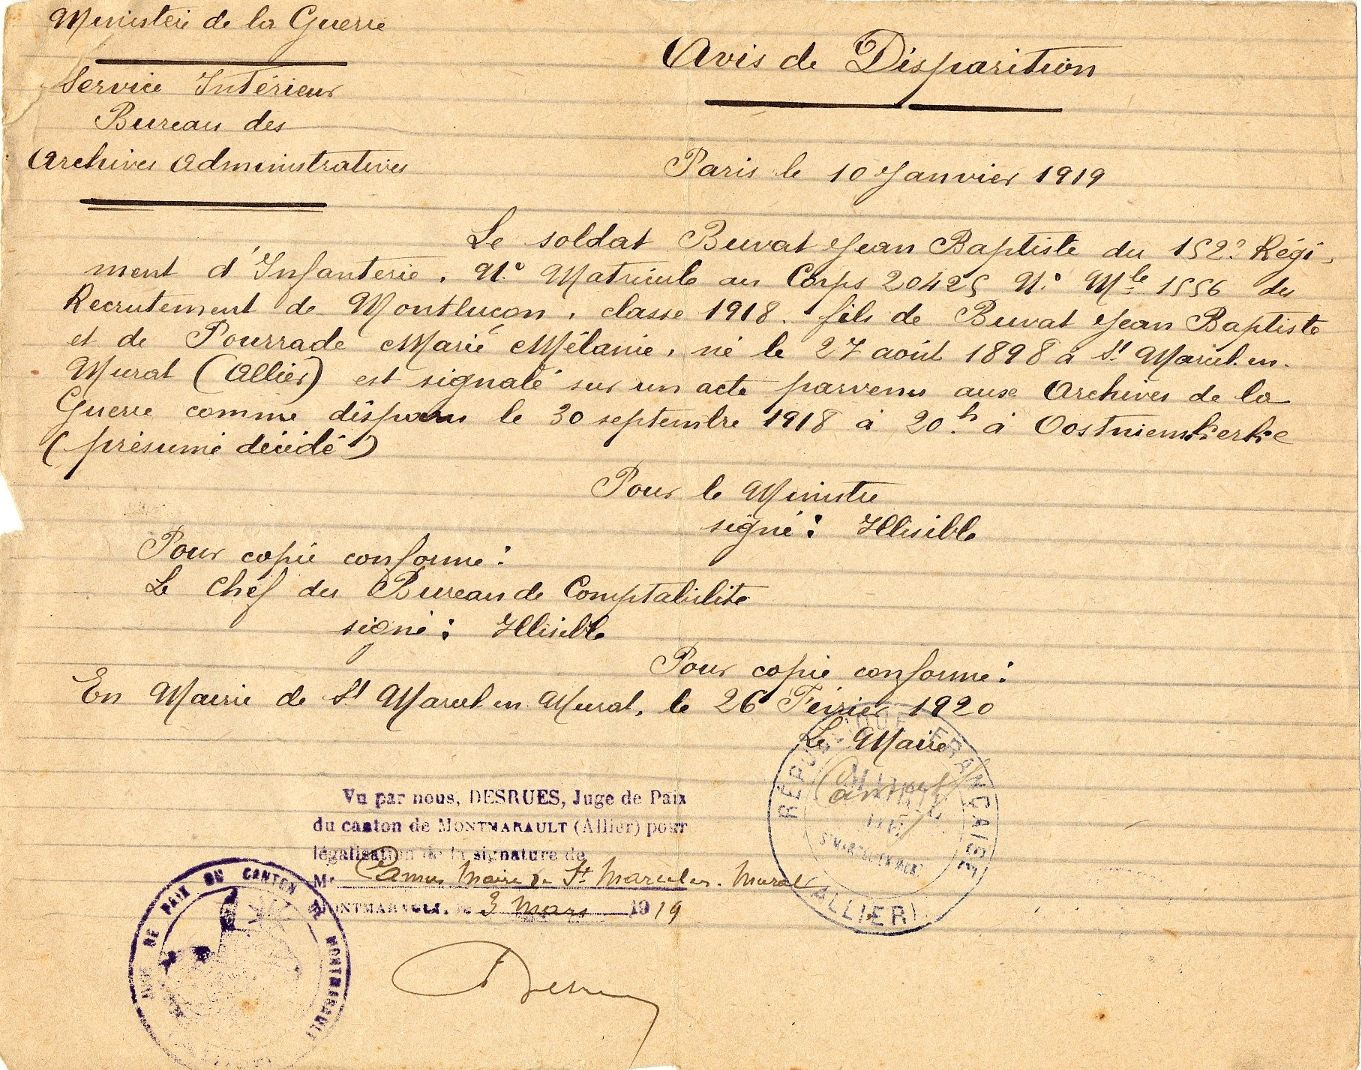 Ministère de la Guerre
Service Intérieur
Bureau des
Archives Administratives
Avis de Disparition
Paris le 10 Janvier 1919
Le soldat Buvat Jean Baptiste du 152e Régi-
ment d'Infanterie. N° Matricule au Corps 20425 N° Mle 1556 du
Recrutement de Montluçon, classe 1918. fils de Buvat Jean Baptiste
et de Pourrade Marie Mélanie, né le 27 août 1898 à St Marcel en-
Murat (Allier) est signalé sur un acte parvenu aux Archives de la
Guerre comme disparu le 30 septembre 1918 à 20h à Oostnieuwkerke
(présumé décédé)
Pour le Ministre
signé : Illisible
Pour copie conforme :
Le Chef du Bureau de Comptabilité
signé : Illisible
Pour copie conforme :
En Mairie de St Marcel en Murat, le 26 Février 1920
Le Maire
RÉPUBLIQUE FRANÇAISE
MAIRIE
ALLIER
Vu par nous, DESRUES, Juge de Paix
du canton de MONTMARAULT (Allier) pour
légalisation de la signature de
M. Camus Maire de St Marcel en Murat
MONTMARAULT, le 3 Mars 1919
DE PAIX DU CANTON DE MONTMARAULT